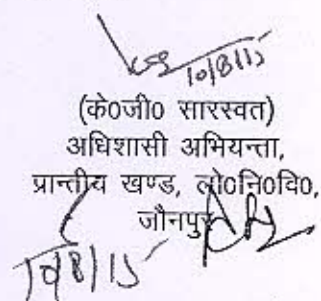 10/8/15
(के०जी० सारस्वत)
अधिशासी अभियन्ता,
प्रान्तीय खण्ड, लो०नि०वि०,
जौनपुर
10/8/15